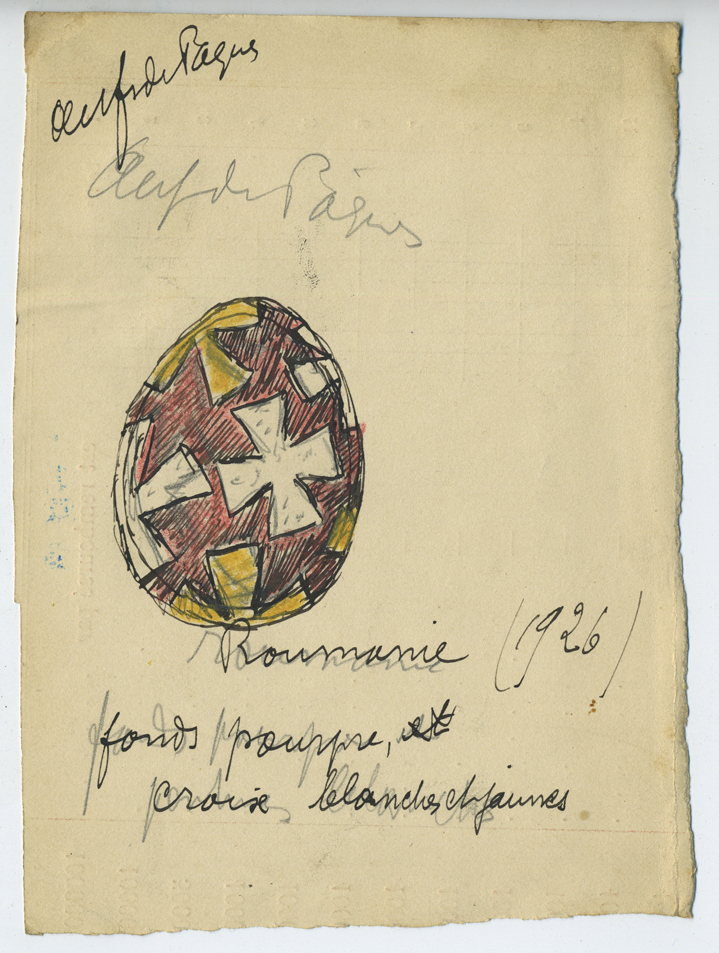 Oeuf de Pâques
Oeuf de Pâques
Roumanie (1926)
fonds pourpre, et
croix blanches et jaunes